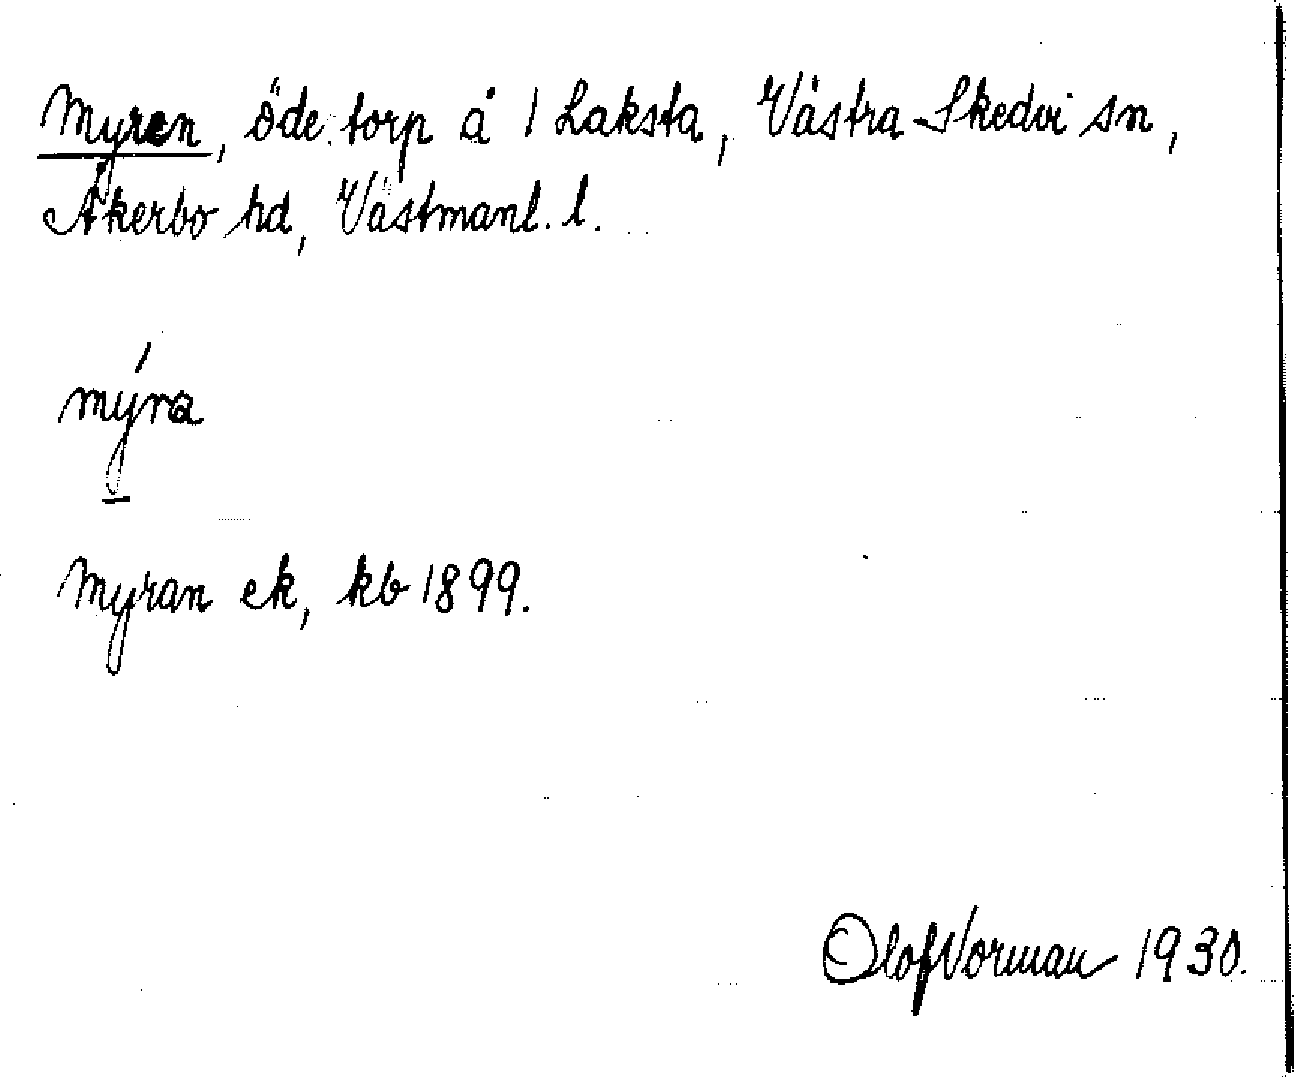 Myren, öde torp å 1 Laksta, Västra Skedvi sn,
Åkerbo hd, Västmanl. l.
mýra
Myran ek, kb 1899.
Olof Norman 1930.